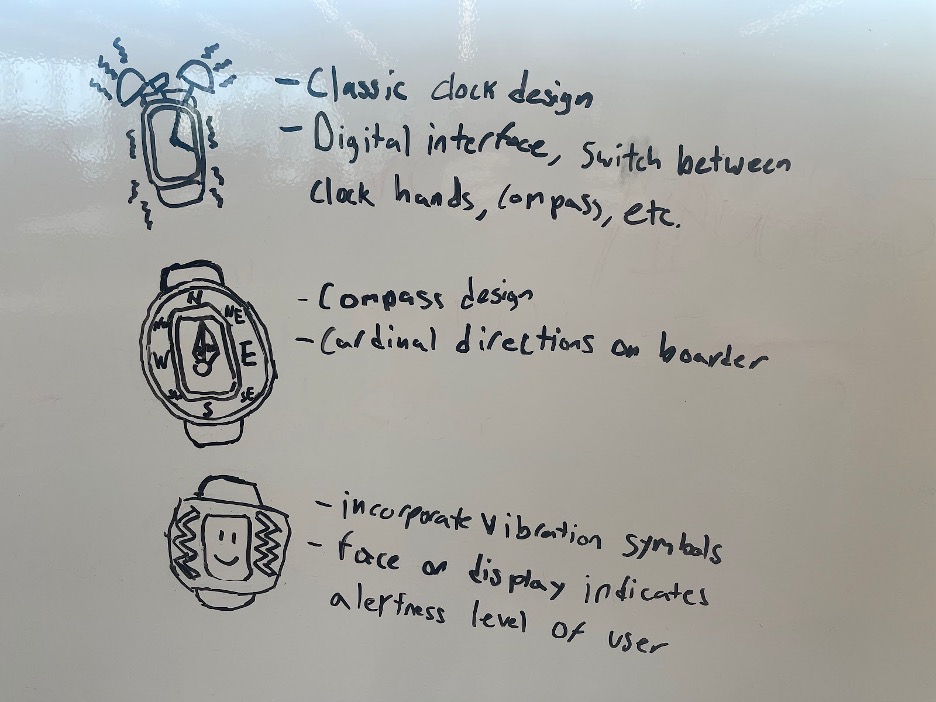 - Classic clock design
- Digital interface, Switch between
clock hands, compass, etc.
N
NW NE
W E
SW SE
S
- Compass design
- Cardinal directions on boarder
- incorporate vibration symbols
- face on display indicates
alertness level of user